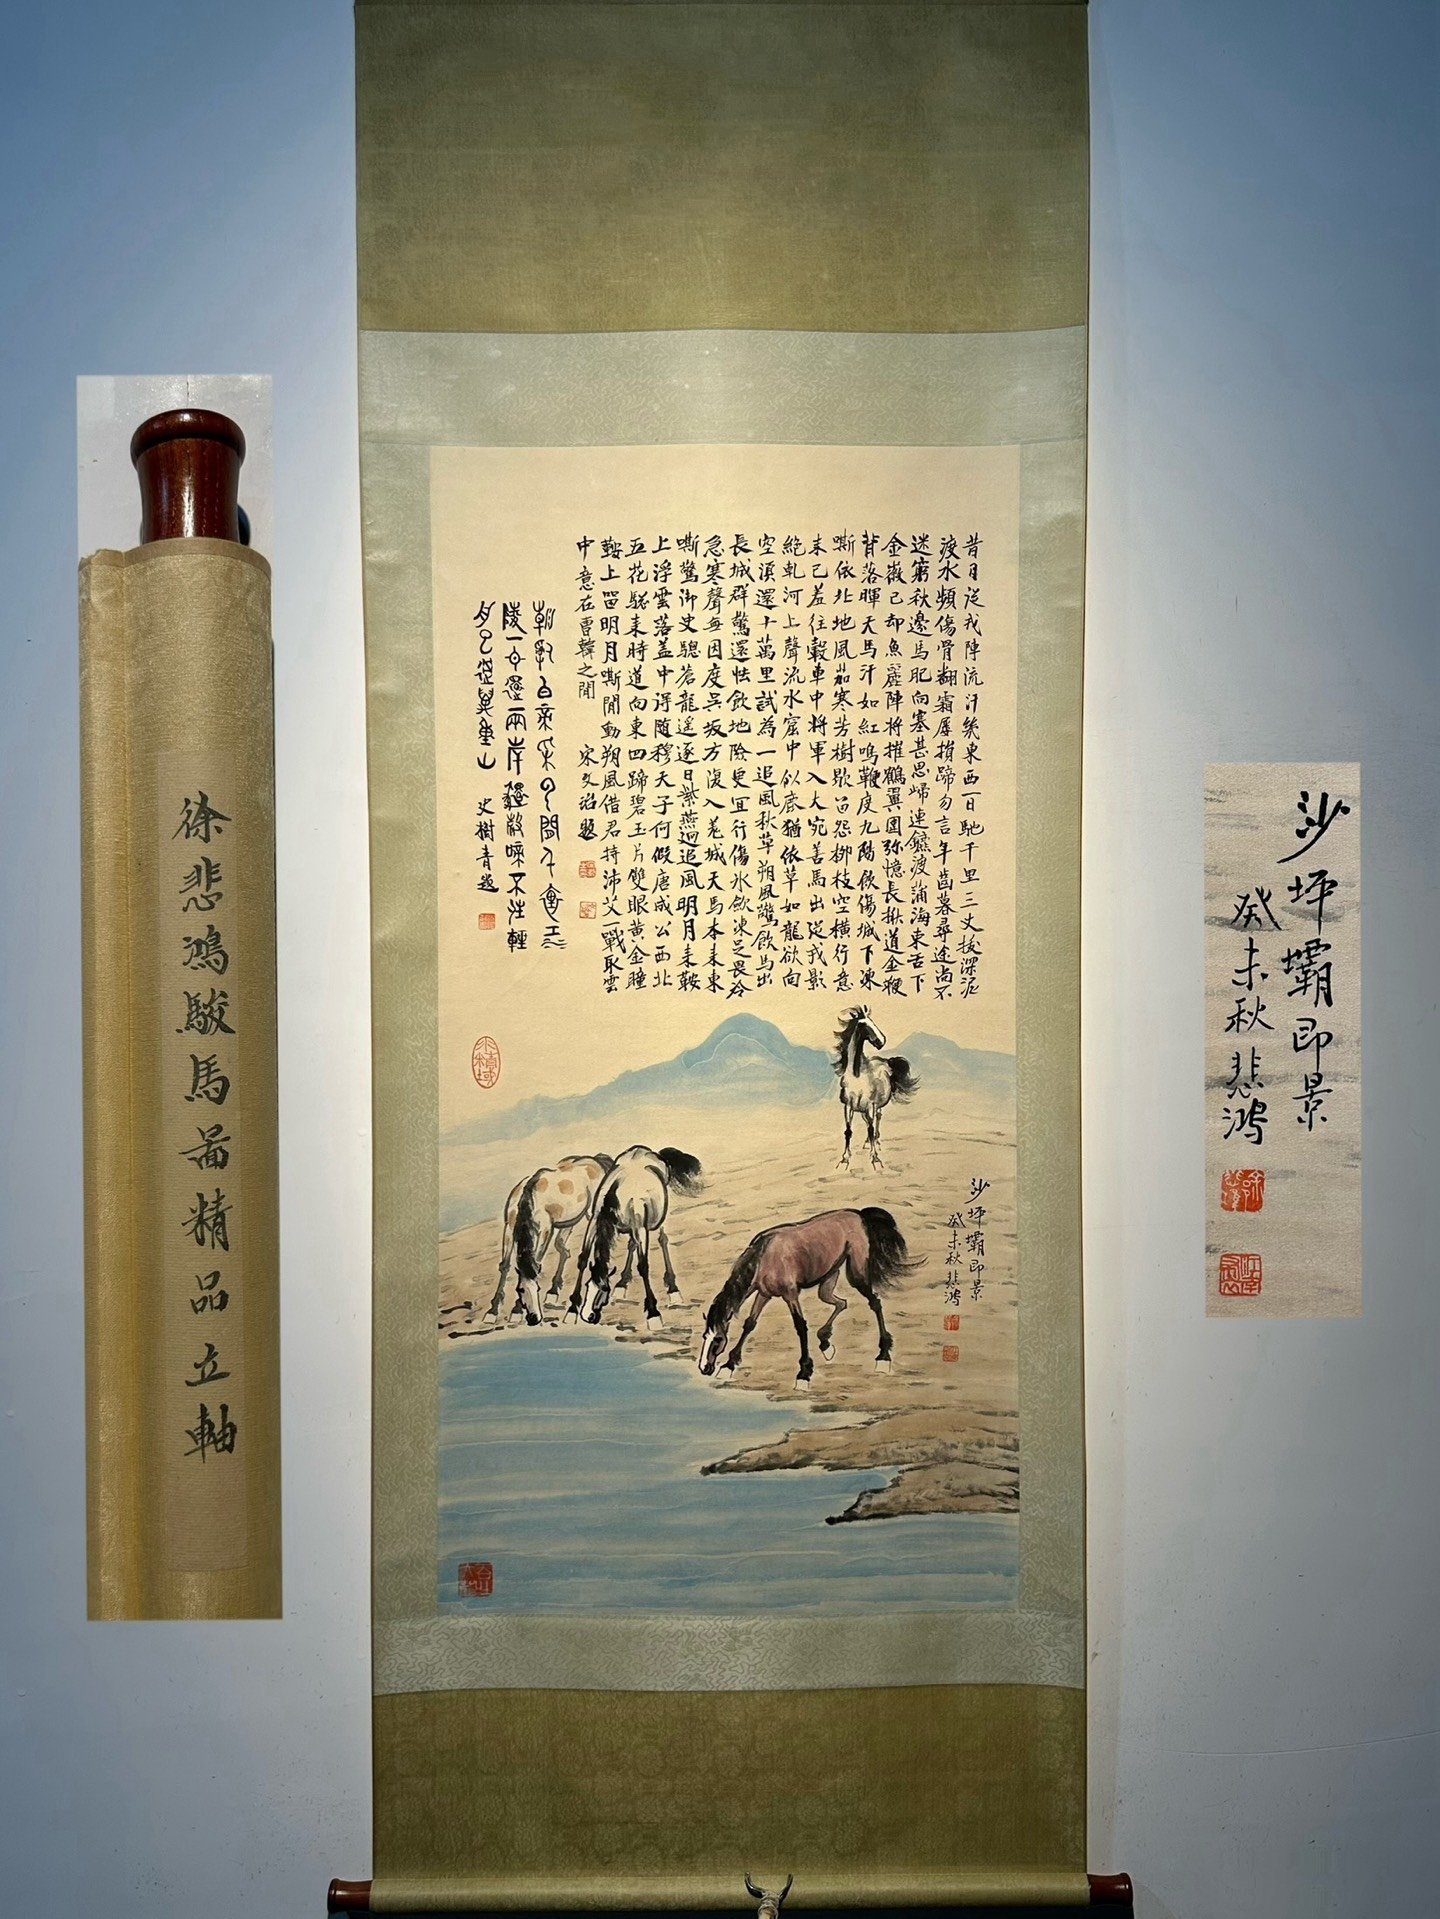 徐悲鴻駿馬圖精品立軸
昔日從戎陣流汗幾東西一日馳千里三丈拔深泥
渡水頻傷骨翻霜屢損蹄勿言年齒暮尋途尚不
迷窮秋邊馬肥向塞甚思歸連鑣渡蒲海東舌下
金微已却魚麗陣將摧鶴翼圍弥憶長楸道金鞭
背落暉天馬汗如紅鳴鞭度九陽飲傷城下凍
嘶依北地風茄寒芳樹歇笛怨柳枝空橫行意
未已羞往轂車中將軍入大宛善馬出從戎影
絕乾河上聲流水窟中似鹿猶依草如龍欲向
空須還十萬里試為一追風秋草朔風驚飲馬出
長城群驚還怯飲地險更宜行傷水飲凍足畏冷
急寒聲每因度吳坂方復入羗城天馬本來東
嘶驚御史驄蒼龍遙逐日紫燕迥追風明月來鞍
上浮雲落蓋中得隨穆天子何假唐成公西北
五花驄來時道向東四蹄碧玉片雙眼黃金瞳
鞍上留明月嘶間動朔風借君持沛艾一戰取雲
中意在曹韓之間 宋文治題
朝辭白帝彩雲間千里江
陵一日還兩岸猿聲啼不住輕
舟已過萬重山 史樹青題
沙坪壩即景
癸未秋悲鴻
沙坪壩即景
癸未秋悲鴻